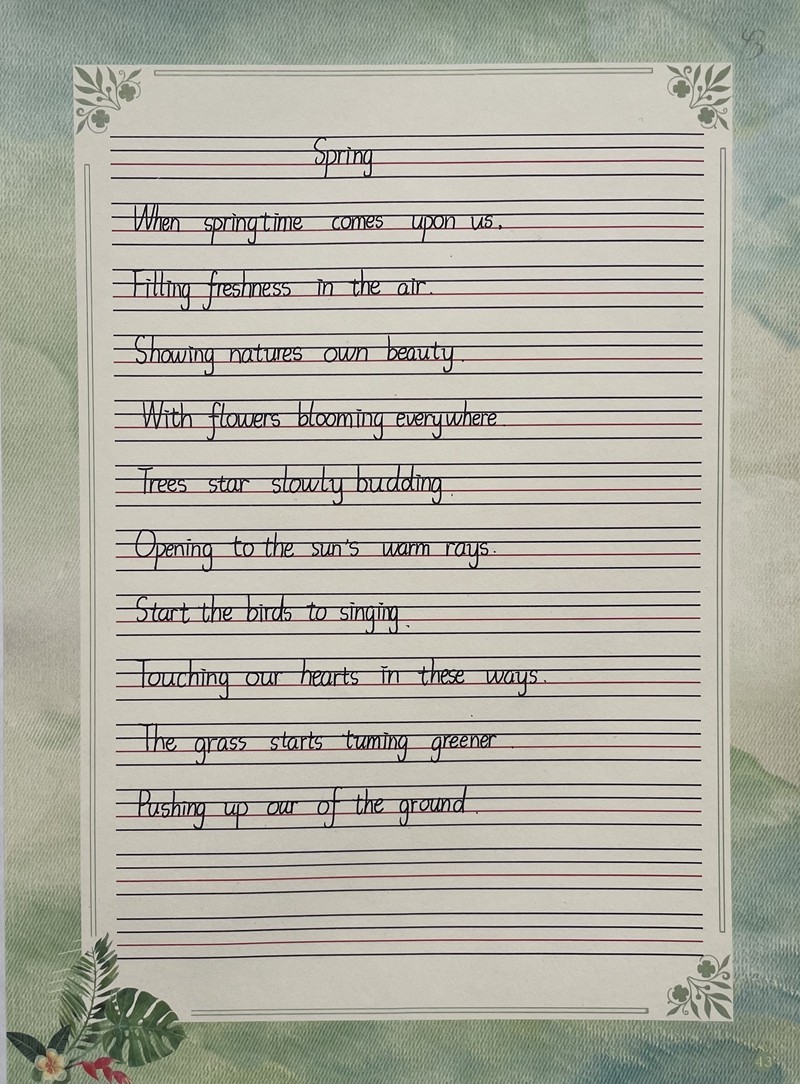 Spring
When springtime comes upon us,
Filling freshness in the air.
Showing natures own beauty.
With flowers blooming everywhere.
Trees star slowly budding.
Opening to the sun's warm rays.
Start the birds to singing.
Touching our hearts in these ways.
The grass starts turning greener.
Pushing up our of the ground.
43